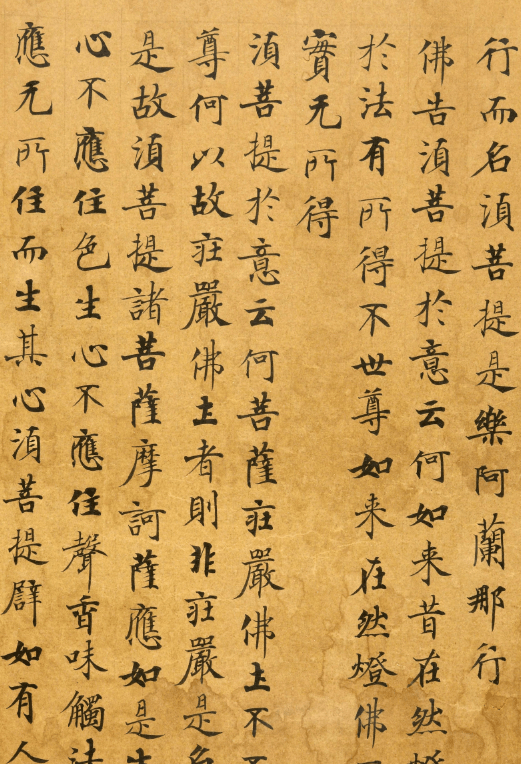 行而名湏菩提是樂阿蘭那行
佛告湏菩提於意云何如来昔在然燈
於法有所得不世尊如来在然燈佛
實无所得
湏菩提於意云何菩薩莊嚴佛土不
尊何以故莊嚴佛土者則非莊嚴是名
是故湏菩提諸菩薩摩訶薩應如是生
心不應住色生心不應住聲香味觸法
應无所住而生其心湏菩提辟如有人